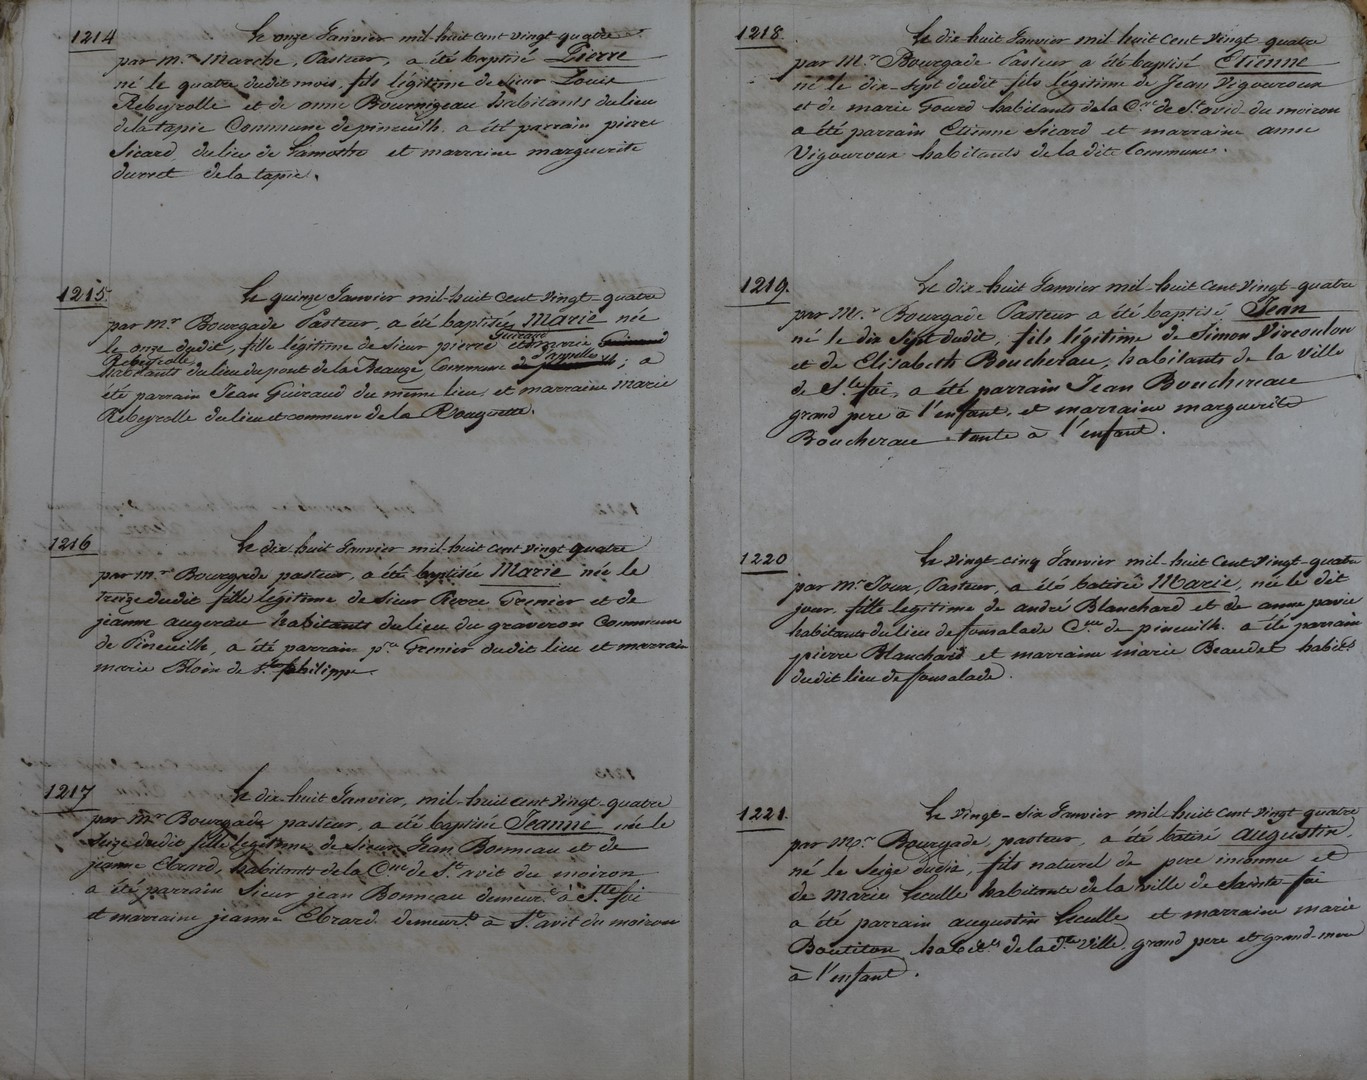 1214
Le onze Janvier mil-huit cent vingt quatre
par mr. Marche, Pasteur, a été baptisé Pierre
né le quatre dudit mois, fils légitime de sieur Louis
Rebeyrolle et de anne Bournigeau habitants du lieu
de la tapie Commune de pineuilh. a été parrain pierre
Sicard, du lieu de Lamothe et marraine marguerite
durret de la tapie.
1215
Le quinze Janvier mil-huit cent vingt-quatre
par mr. Bourgade Pasteur, a été baptisée Marie née
le onze dudit, fille légitime de sieur pierre Guiraud et marie
Rebeyrolle habitants du lieu du pont de la Beauze Commune d'appelles; a
été parrain Jean Guiraud du même lieu, et marraine Marie
Rebeyrolle du lieu et commune de la Rouquette.
1216
Le dix huit Janvier mil-huit cent vingt quatre
par mr. Bourgade pasteur, a été baptisée Marie née le
treize dudit fille légitime de sieur Pierre Grenier et de
jeanne augereau habitants du lieu du graveron Commune
de Pineuilh, a été parrain pre. Grenier dudit lieu et marraine
marie Bloin de St. philippe.
1217
Le dix-huit Janvier, mil-huit cent vingt-quatre
par mr. Bourgade pasteur, a été baptisée Jeanne née le
seize dudit fille légitime de sieur Jean Bonneau et de
jeanne Ebrard, habitants de la Cne de St. avit du moiron
a été parrain sieur jean Bonneau demeurt. à Ste. foi
et marraine jeanne Ebrard demeurt. à St. avit du moiron
1218.
Le dix huit Janvier mil huit Cent vingt quatre
par Mr. Bourgade Pasteur a été baptisé Etienne
né le dix-sept dudit fils légitime de Jean Vigouroux
et de marie Gourd habitants de la Cne de St. avid-du moiron
a été parrain Etienne Sicard et marraine anne
Vigouroux habitants de la dite Commune.
1219.
Le dix-huit Janvier mil-huit Cent vingt-quatre
par Mr. Bourgade Pasteur a été baptisé, Jean
né le dix Sept dudit, fils légitime de Simon Vircoulon
et de Elisabeth Boucherau, habitants de la ville
de Ste. foi, a été parrain Jean Bouchereau
grand pere à l'enfant, et marraine marguerite
Boucherau tante à l'enfant.
1220
Le vingt cinq Janvier mil-huit Cent vingt-quatre
par mr Joux, Pasteur, a été batisée Marie, née le dit
jour, fille legitime de andré Blanchard et de anne pavie
habitants du lieu de fonsalade Cne. de pineuilh. a été parrain
pierre Blanchard et marraine marie Beaudet habits
dudit lieu de fonsalade.
1221.
Le vingt-six Janvier mil huit Cent vingt quatre
par Mr. Bourgade pasteur, a été batisé augustin.
né le seize dudit, fils naturel de pere inconnu et
de Marie Leculle habitante de la ville de Sainte-foi
a été parrain augustin Leculle et marraine marie
Boutiton, habits. de la de. ville, grand pere et grand-mere
à l'enfant.